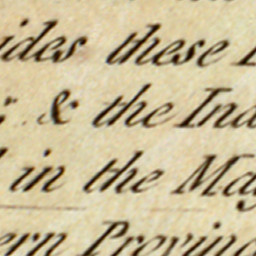 ides these
& the Ind
in the Mag
ern Provinc